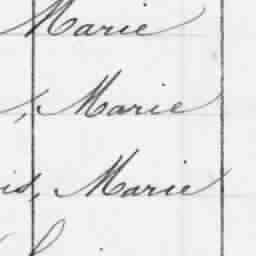 Marie
, Marie
is, Marie